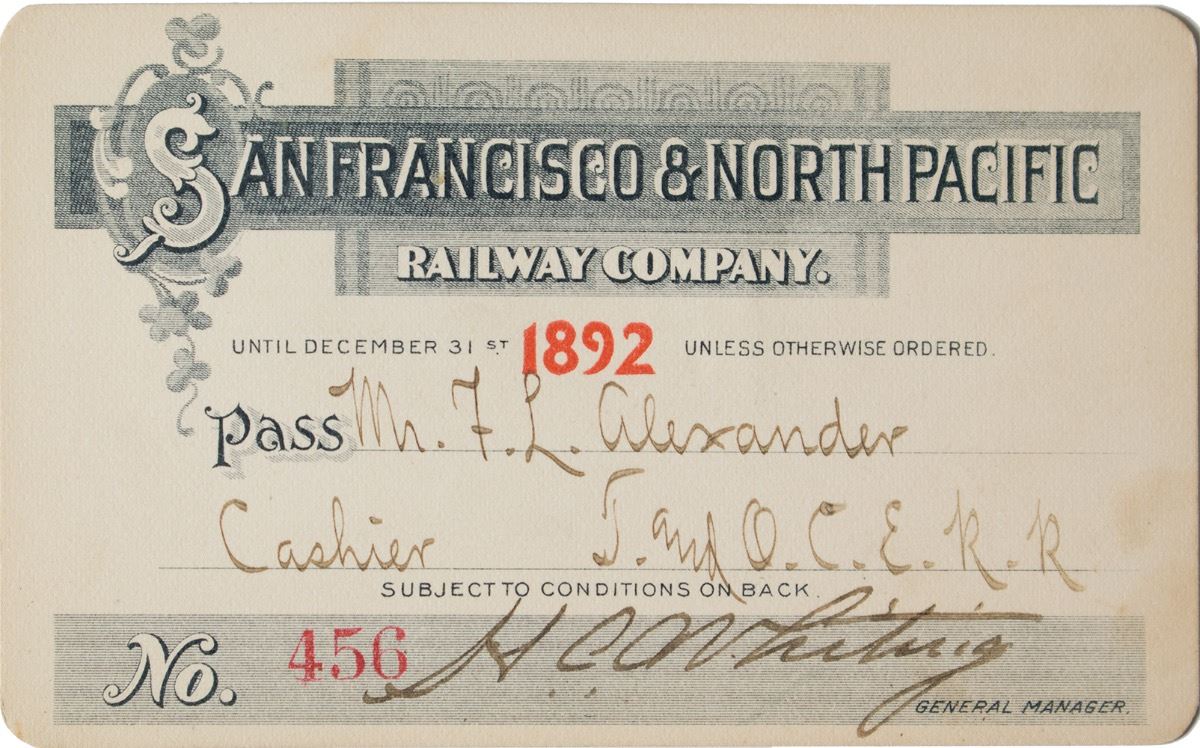 SAN FRANCISCO & NORTH PACIFIC
RAILWAY COMPANY.
UNTIL DECEMBER 31ST 1892 UNLESS OTHERWISE ORDERED.
Pass Mr. F. L. Alexander
Cashier T. and O. C. E. R. R
SUBJECT TO CONDITIONS ON BACK.
No. 456 H C Whiting
GENERAL MANAGER.